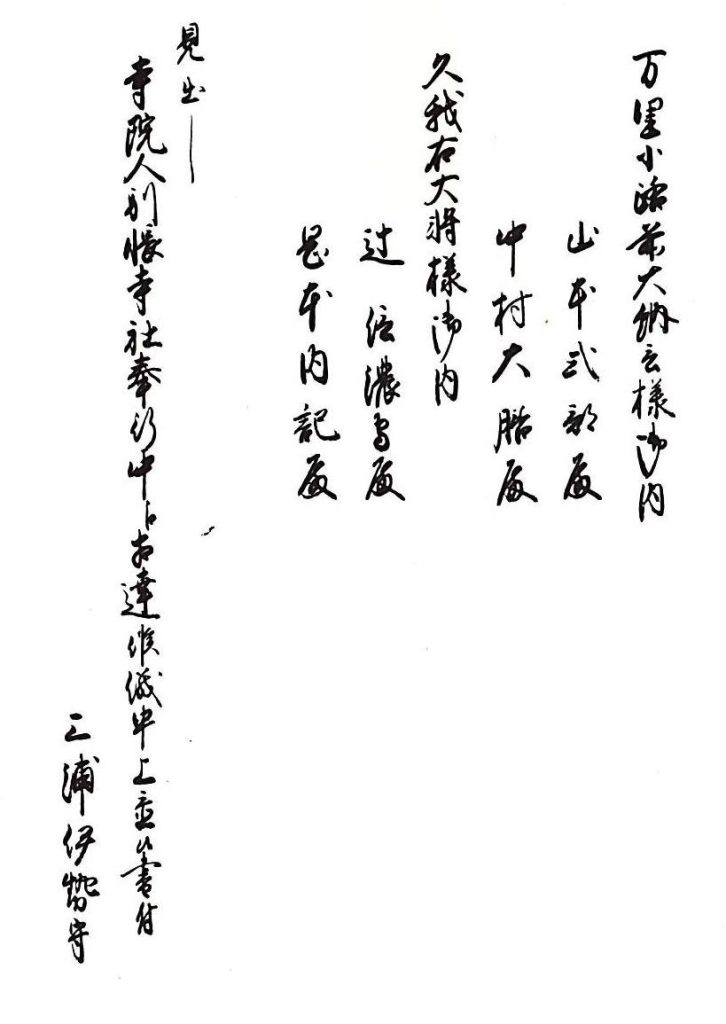 万里小路前大納言様御内
山本式部殿
中村大膳殿
久我右大将様御内
辻信濃守殿
岡本内記殿
見出し
寺院人別帳寺社奉行中江相達候儀申上置候書付
三浦伊勢守